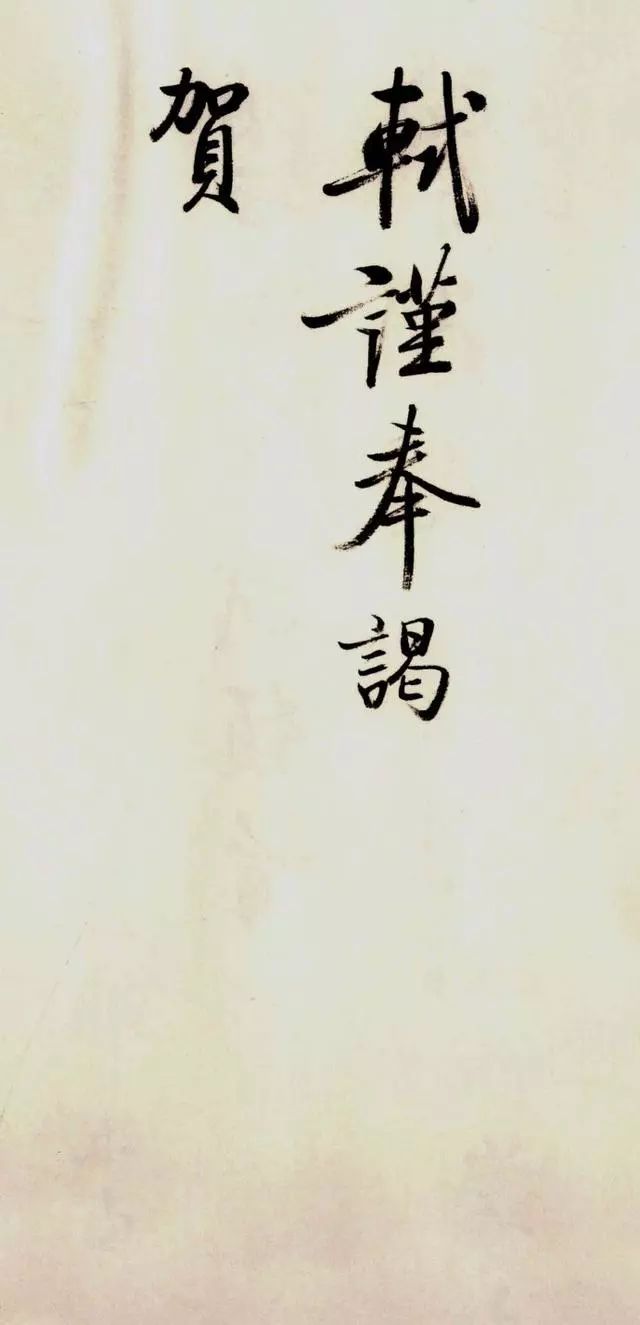 軾謹奉謁
賀